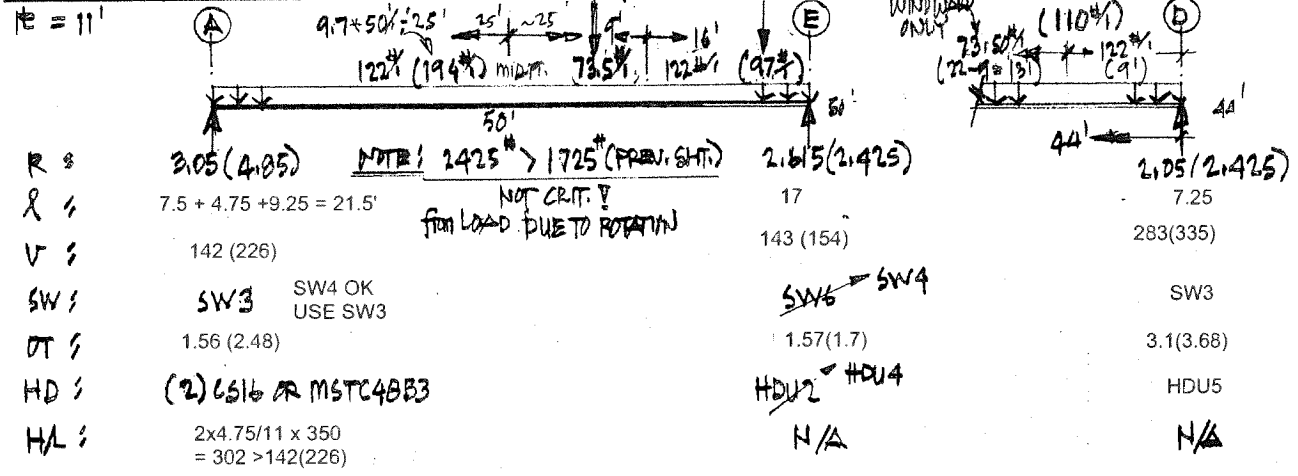 = 11'
A
9.7*50#/' 25'
25' ~25'
9' 16'
E
WINDWARD
ONLY
(110#/')
D
122#/' (194#/') mid.pt. 73.5#/' 122#/' (97#/')
73.50#/' 122#/'
(22-9=13') (9')
50' 50' 44'
44'
R : 3.05(4.85) NOTE! 2425# > 1725# (PREV. SHT.) 2.615(2.425) 2.05(2.425)
NOT CRIT. !
from LOAD DUE TO ROTATION
l : 7.5 + 4.75 +9.25 = 21.5' 17 7.25
V : 142 (226) 143 (154) 283(335)
SW : SW3 SW4 OK SW6 SW4 SW3
USE SW3
OT : 1.56 (2.48) 1.57(1.7) 3.1(3.68)
HD : (2) CS16 OR MSTC48B3 HDU2 HDU4 HDU5
H/L : 2x4.75/11 x 350 N/A N/A
= 302 >142(226)